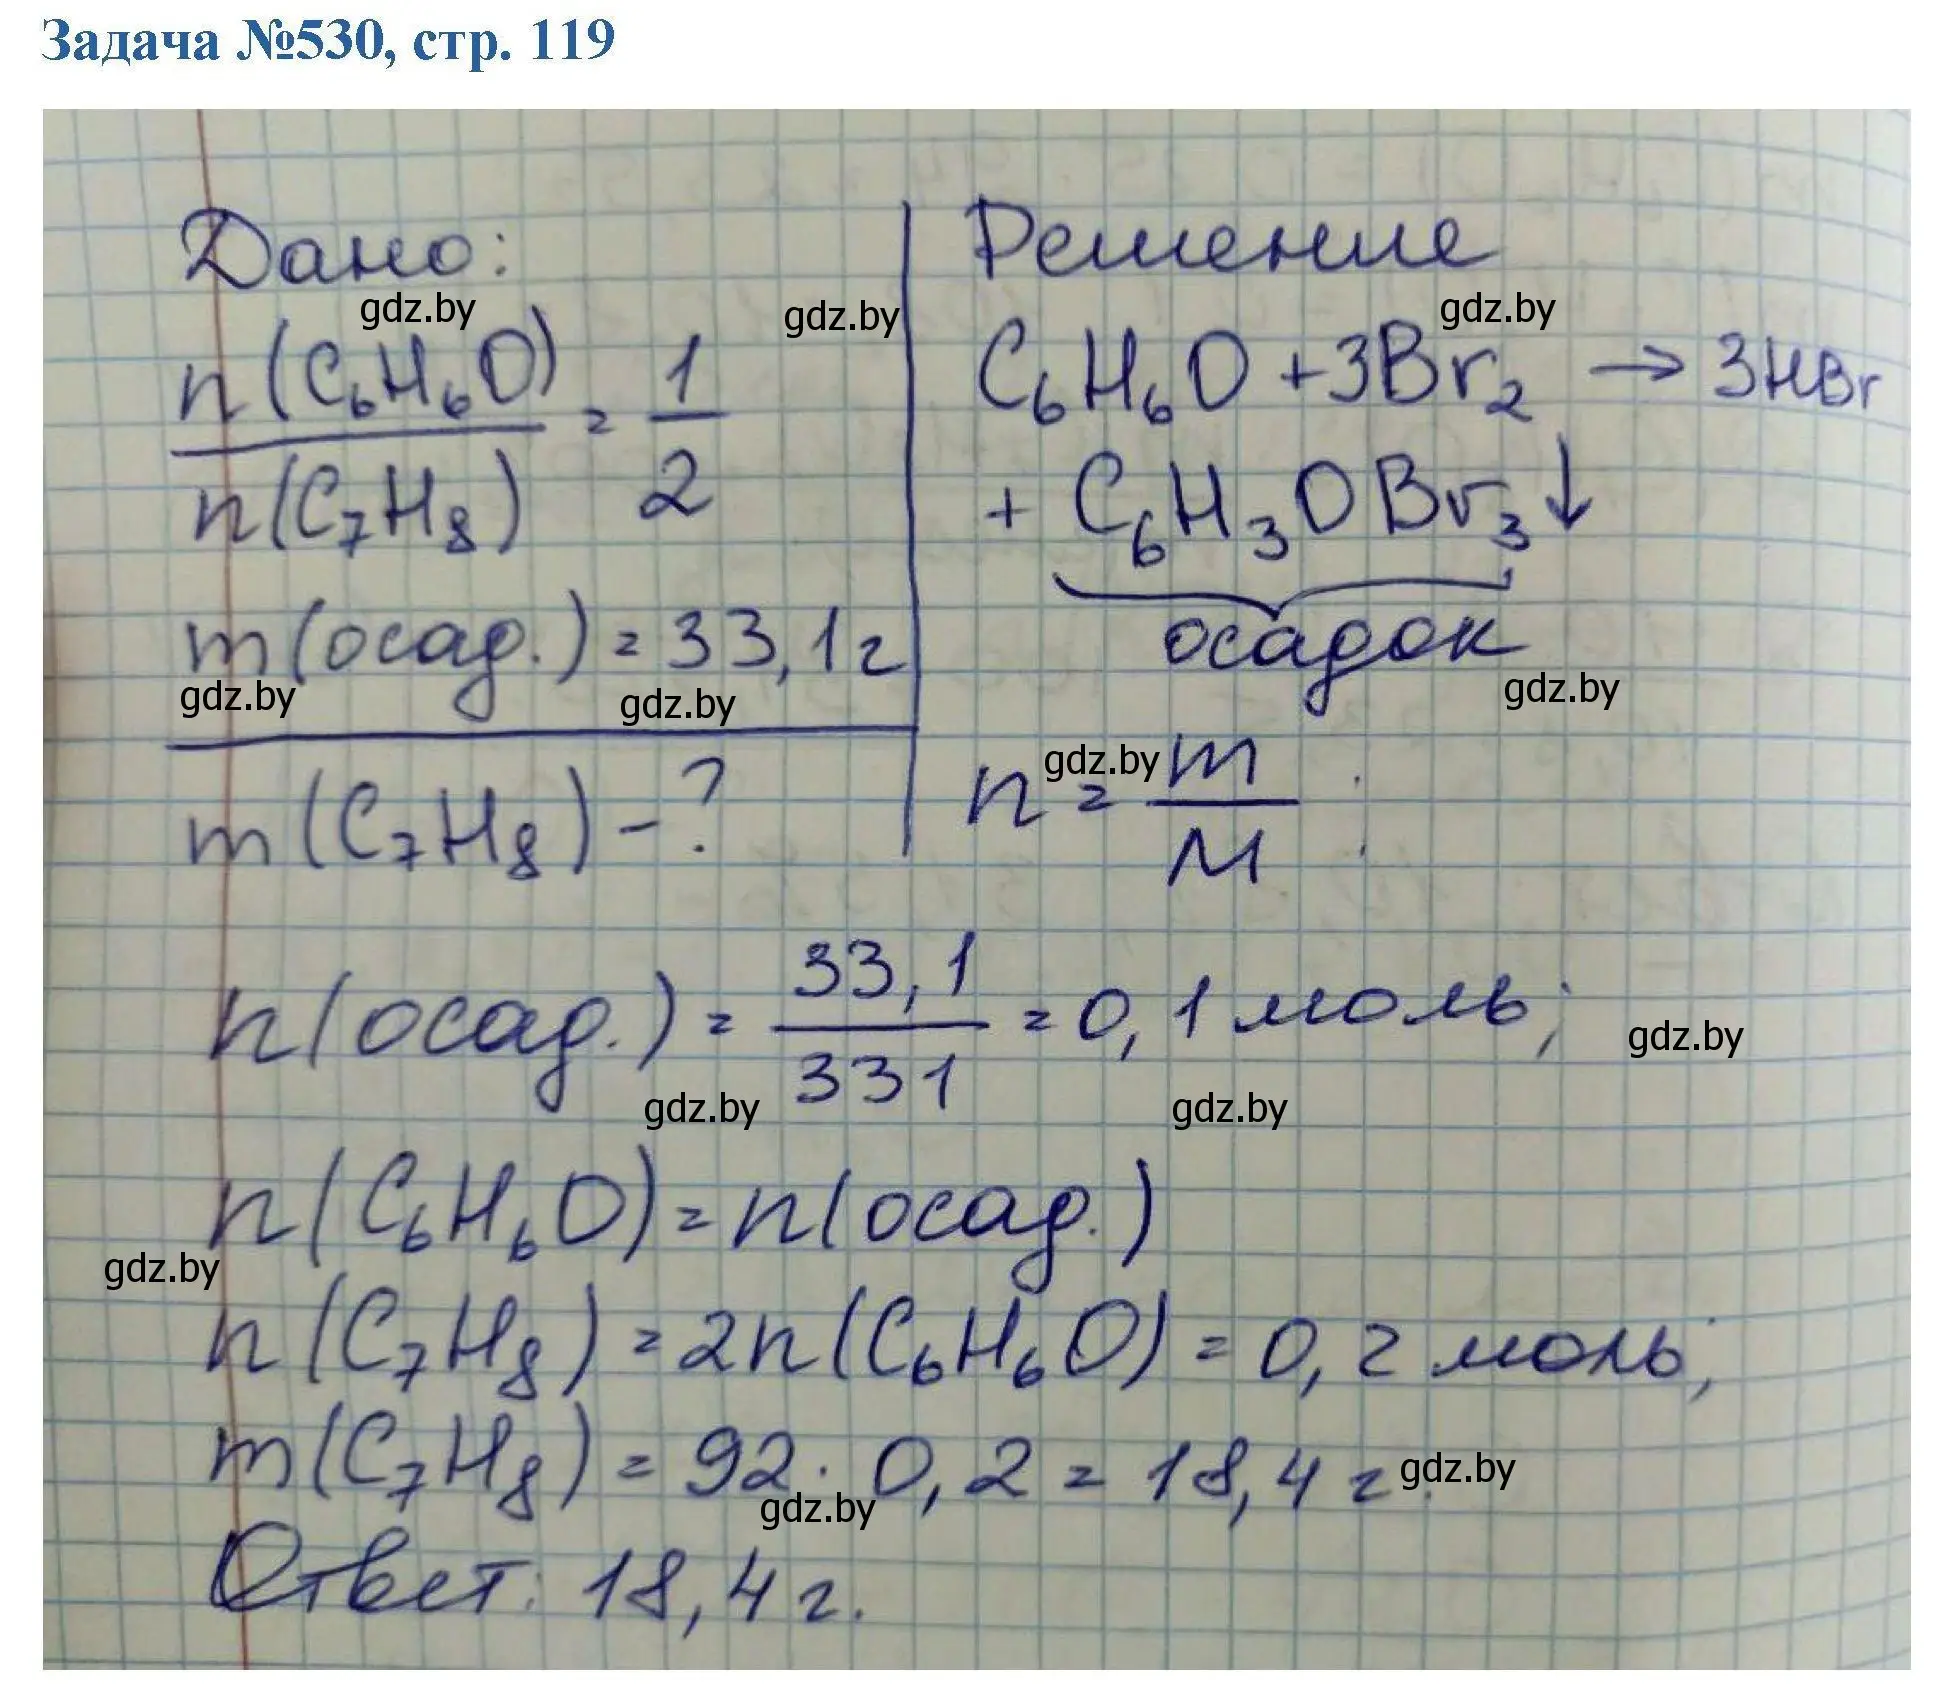 Задача №530, стр. 119
Дано:
n(C₆H₆O) / n(C₇H₈) = 1/2
m(осад.) = 33,1 г
m(C₇H₈) - ?
Решение
C₆H₆O + 3Br₂ → 3HBr
+ C₆H₃OBr₃↓
осадок
n = m/M ;
n(осад.) = 33,1/331 = 0,1 моль;
n(C₆H₆O) = n(осад.)
n(C₇H₈) = 2n(C₆H₆O) = 0,2 моль;
m(C₇H₈) = 92 · 0,2 = 18,4 г.
Ответ: 18,4 г.
gdz.by
gdz.by
gdz.by
gdz.by
gdz.by
gdz.by
gdz.by
gdz.by
gdz.by
gdz.by
gdz.by
gdz.by
gdz.by